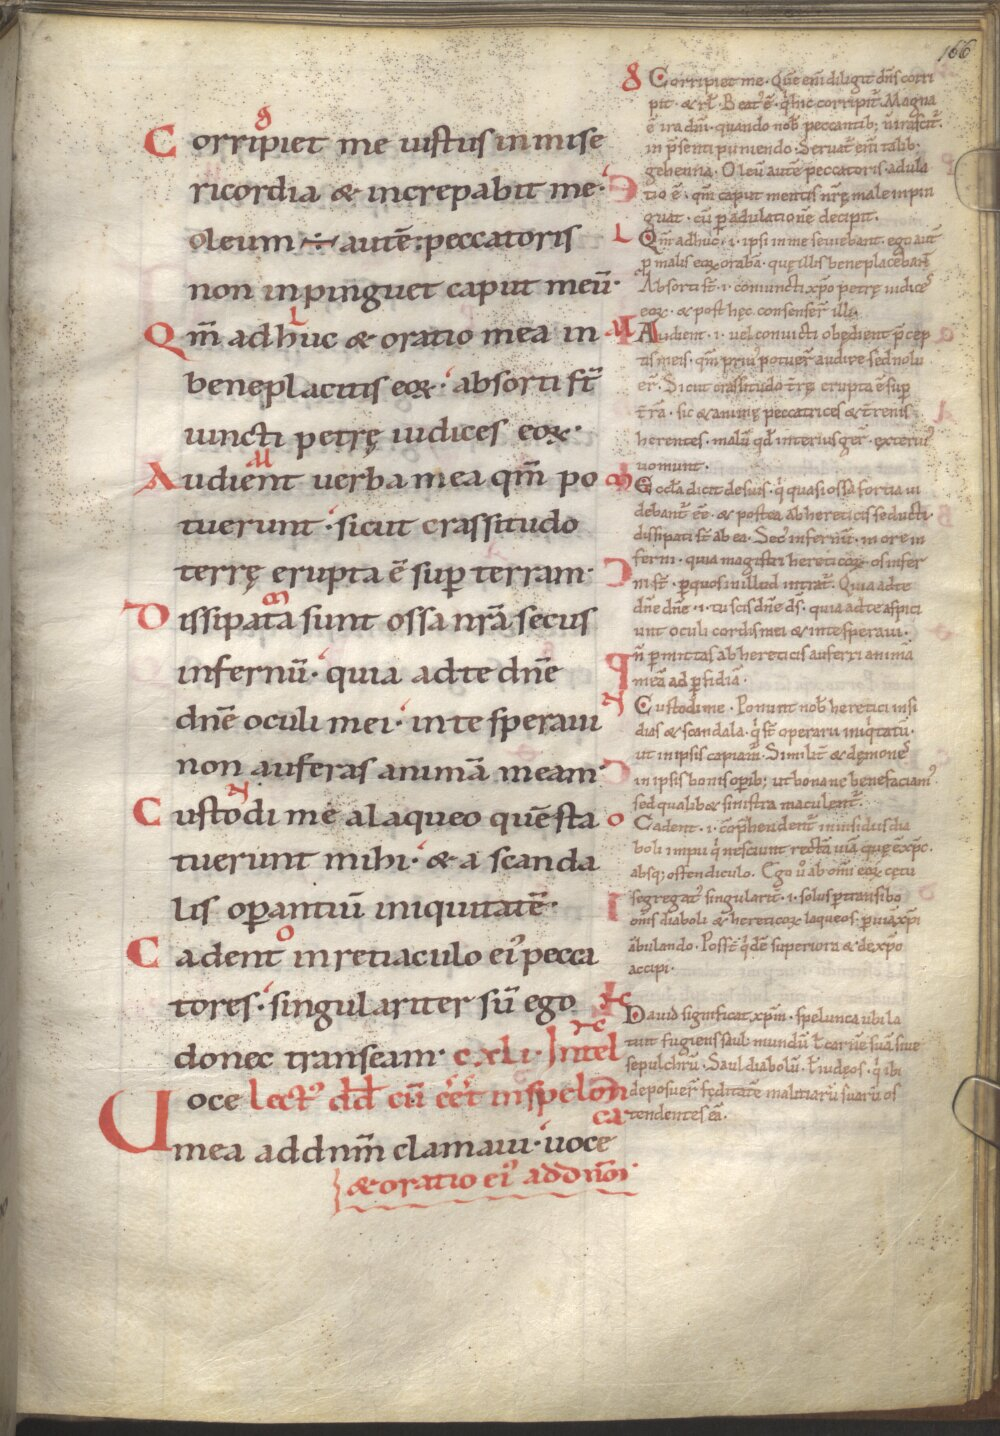 166
Corripiet me iustus in mise
ricordia & increpabit me·
oleum ÷ autē: peccatoris
non inpinguet caput meū·
Qm̄ adhuc & oratio mea in
beneplacitis eoꝝ· absorti st̄
iuncti petrę iudices eoꝝ·
Audient verba mea qm̄ po
tuerunt· sicut crassitudo
terrę erupta ē sup̄ terram·
Dissipata sunt ossa nr̄a secus
infernū· quia ad te dn̄e
dn̄e oculi mei· in te speraui
non auferas animā meam·
Custodi me a laqueo quē sta
tuerunt mihi· & a scanda
lis op̄antiū iniquitatē·
Cadent in retiaculo ei' pecca
tores· singulariter sū ego
donec transeam· cxli· Intel
Uoce lect' dd̄ cū eēt in spelon
ca
mea ad dnm̄ clamaui· uoce
& oratio ei' ad dnm̄·
g Corripiet me· Quē eni diligit dn̄s corri
pit· & rl̄· Beat' ē· q' hic corripit'· Magna
ē ira dni· quando nob̄ peccantib; n̄ irascit'·
in p̄senti puniendo· Seruat eni talib;
gehenna· Oleū autē peccatoris· adula
tio ē· qm̄ caput mentis nr̄ę male inpin
guat· cū p̄ adulationē decipit·
L Qm̄ adhuc· i· ipsi in me seuiebant· ego aut̄
p̄ malis eoꝝ orabā· quę illis beneplacebant
Absorti st̄· i· coniuncti xp̄o petrę iudice'
eoꝝ· & post hęc consenser̄ illi·
M Audient· i· uel conuicti obędient p̄cep
tis meis· qm̄ pri' potuer̄ audire sed nolu
er̄· Sicut crassitudo t̄rę erupta ē sup̄
t̄rā· sic & animę peccatrices & t̄renis
herentes· malū qd̄ interius ger̄· exteri'
uomunt·
Eccl̄a dicit de suis· q' quasi ossa fortia ui
debant' eē· & postea ab hereticis seducti·
dissipati st̄ ab ea· Sec' infernū· in ore in
ferni· quia magistri hereticoꝝ os infer
ni st̄· p̄ quos in illud intrat'· Quia ad te
dn̄e dn̄e· i· tu scis dn̄e ds̄· quia ad te aspici
unt oculi cordis mei & in te speraui·
n̄ p̄mittas ab hereticis auferri animā
meā ad p̄fidia·
Custodi me· Ponunt nob̄ heretici insi
dias & scandala· q' st̄ operarii iniq'tatū·
ut in ipsis capiam'· Similit̄ & demone'
in ipsis bonis op̄ib; ut bona ne benefaciam'
sed qualib& sinistra maculent'·
o Cadent· i· cōp̄hendent' in insidiis dia
boli impii q' nesciunt rectā uiā quę ē xp̄c·
absq; ostendiculo· Ego u' ab omi eoꝝ cętu
segregat' singularit̄· i· solus p̄transibo
om̄s diaboli & hereticoꝝ laqueos· p̄ uiā xp̄i
ābulando· Posst̄ q'dē superiora & de xp̄o
accipi·
Dauid significat xp̄m· spelunca ubi la
tuit fugiens saul mundū l̄ carnē suā siue
sepulchrū· Saul diabolū· l̄ iudęos· q' ibi
deposuer̄ fęditatē malitiarū suarū os
tendentes eā·